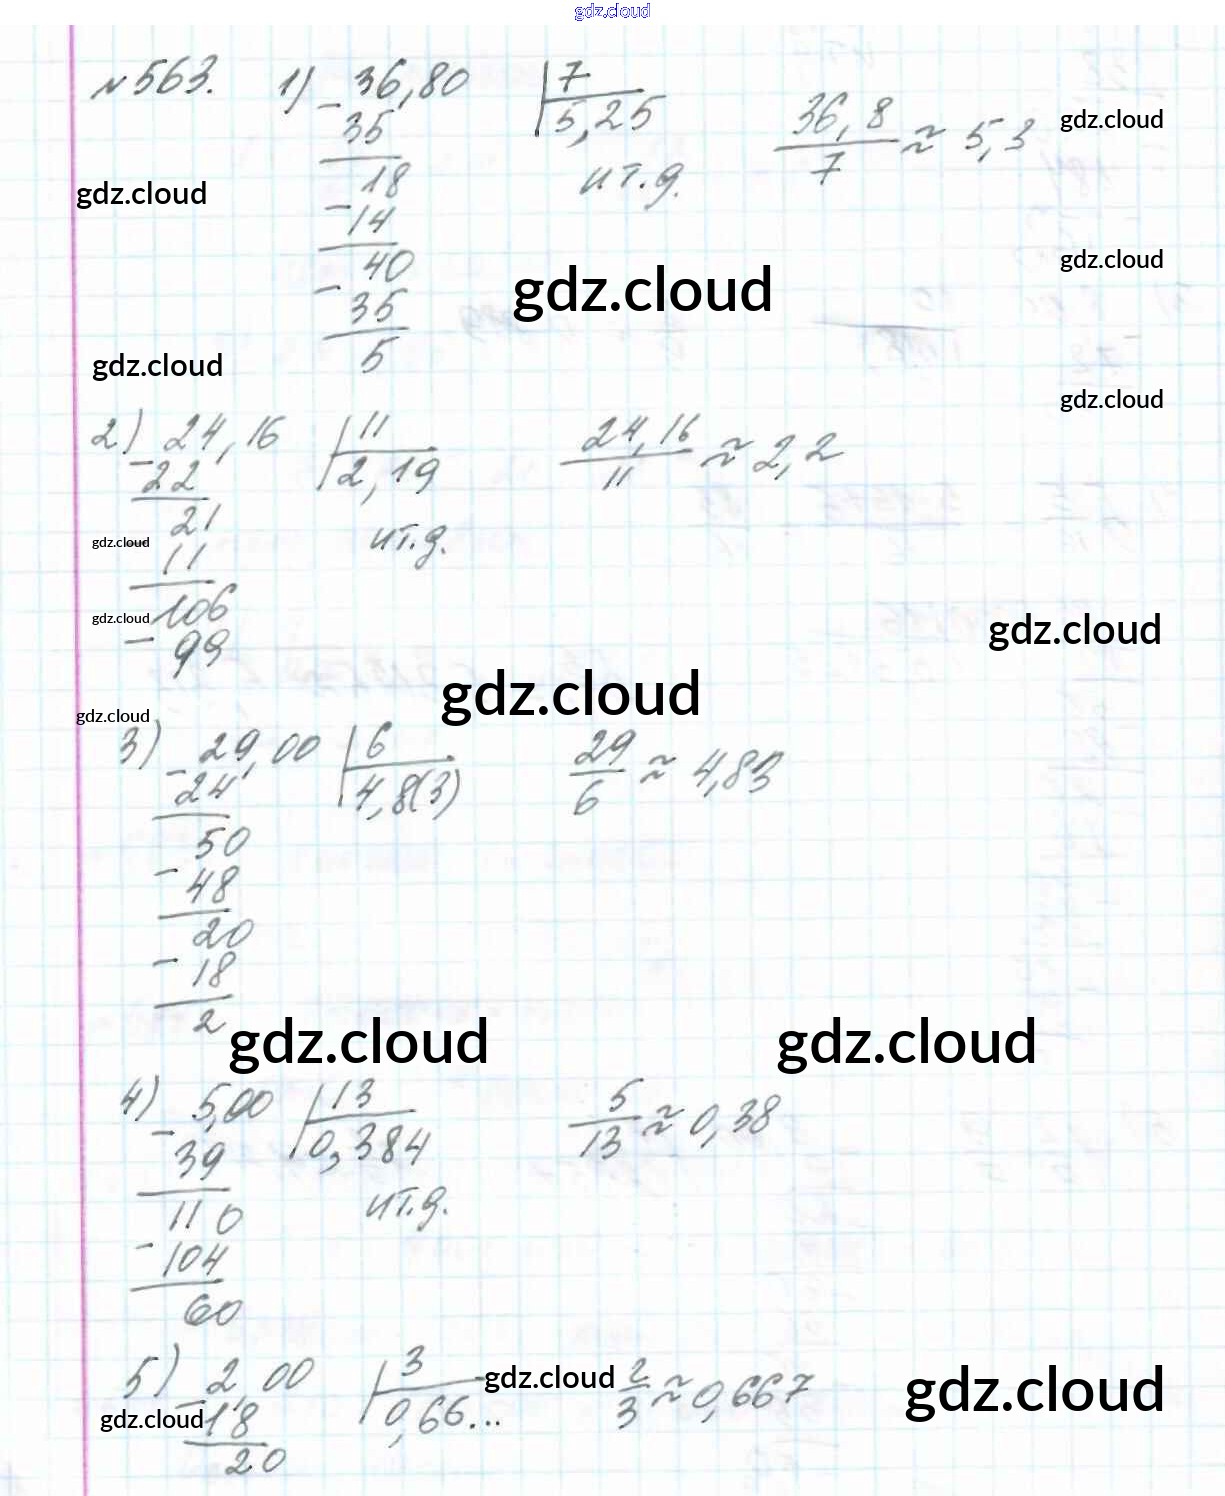 gdz.cloud
№563. 1) 36,80 | 7
- 35 5,25 36,8/7 ≈ 5,3 gdz.cloud
18 и т.д. gdz.cloud
- 14
40 gdz.cloud gdz.cloud
- 35
5 gdz.cloud
gdz.cloud
2) 24,16 | 11 24,16/11 ≈ 2,2
- 22 2,19
21 и т.д.
gdz.cloud
11
106 gdz.cloud
- 99 gdz.cloud
gdz.cloud gdz.cloud
3) 29,00 | 6 29/6 ≈ 4,83
- 24 4,8(3)
50
- 48
20
- 18
2 gdz.cloud gdz.cloud
4) 5,00 | 13 5/13 ≈ 0,38
- 39 0,384
110 и т.д.
- 104
60
5) 2,00 | 3 gdz.cloud 2/3 ≈ 0,667 gdz.cloud
gdz.cloud - 18 0,66...
20